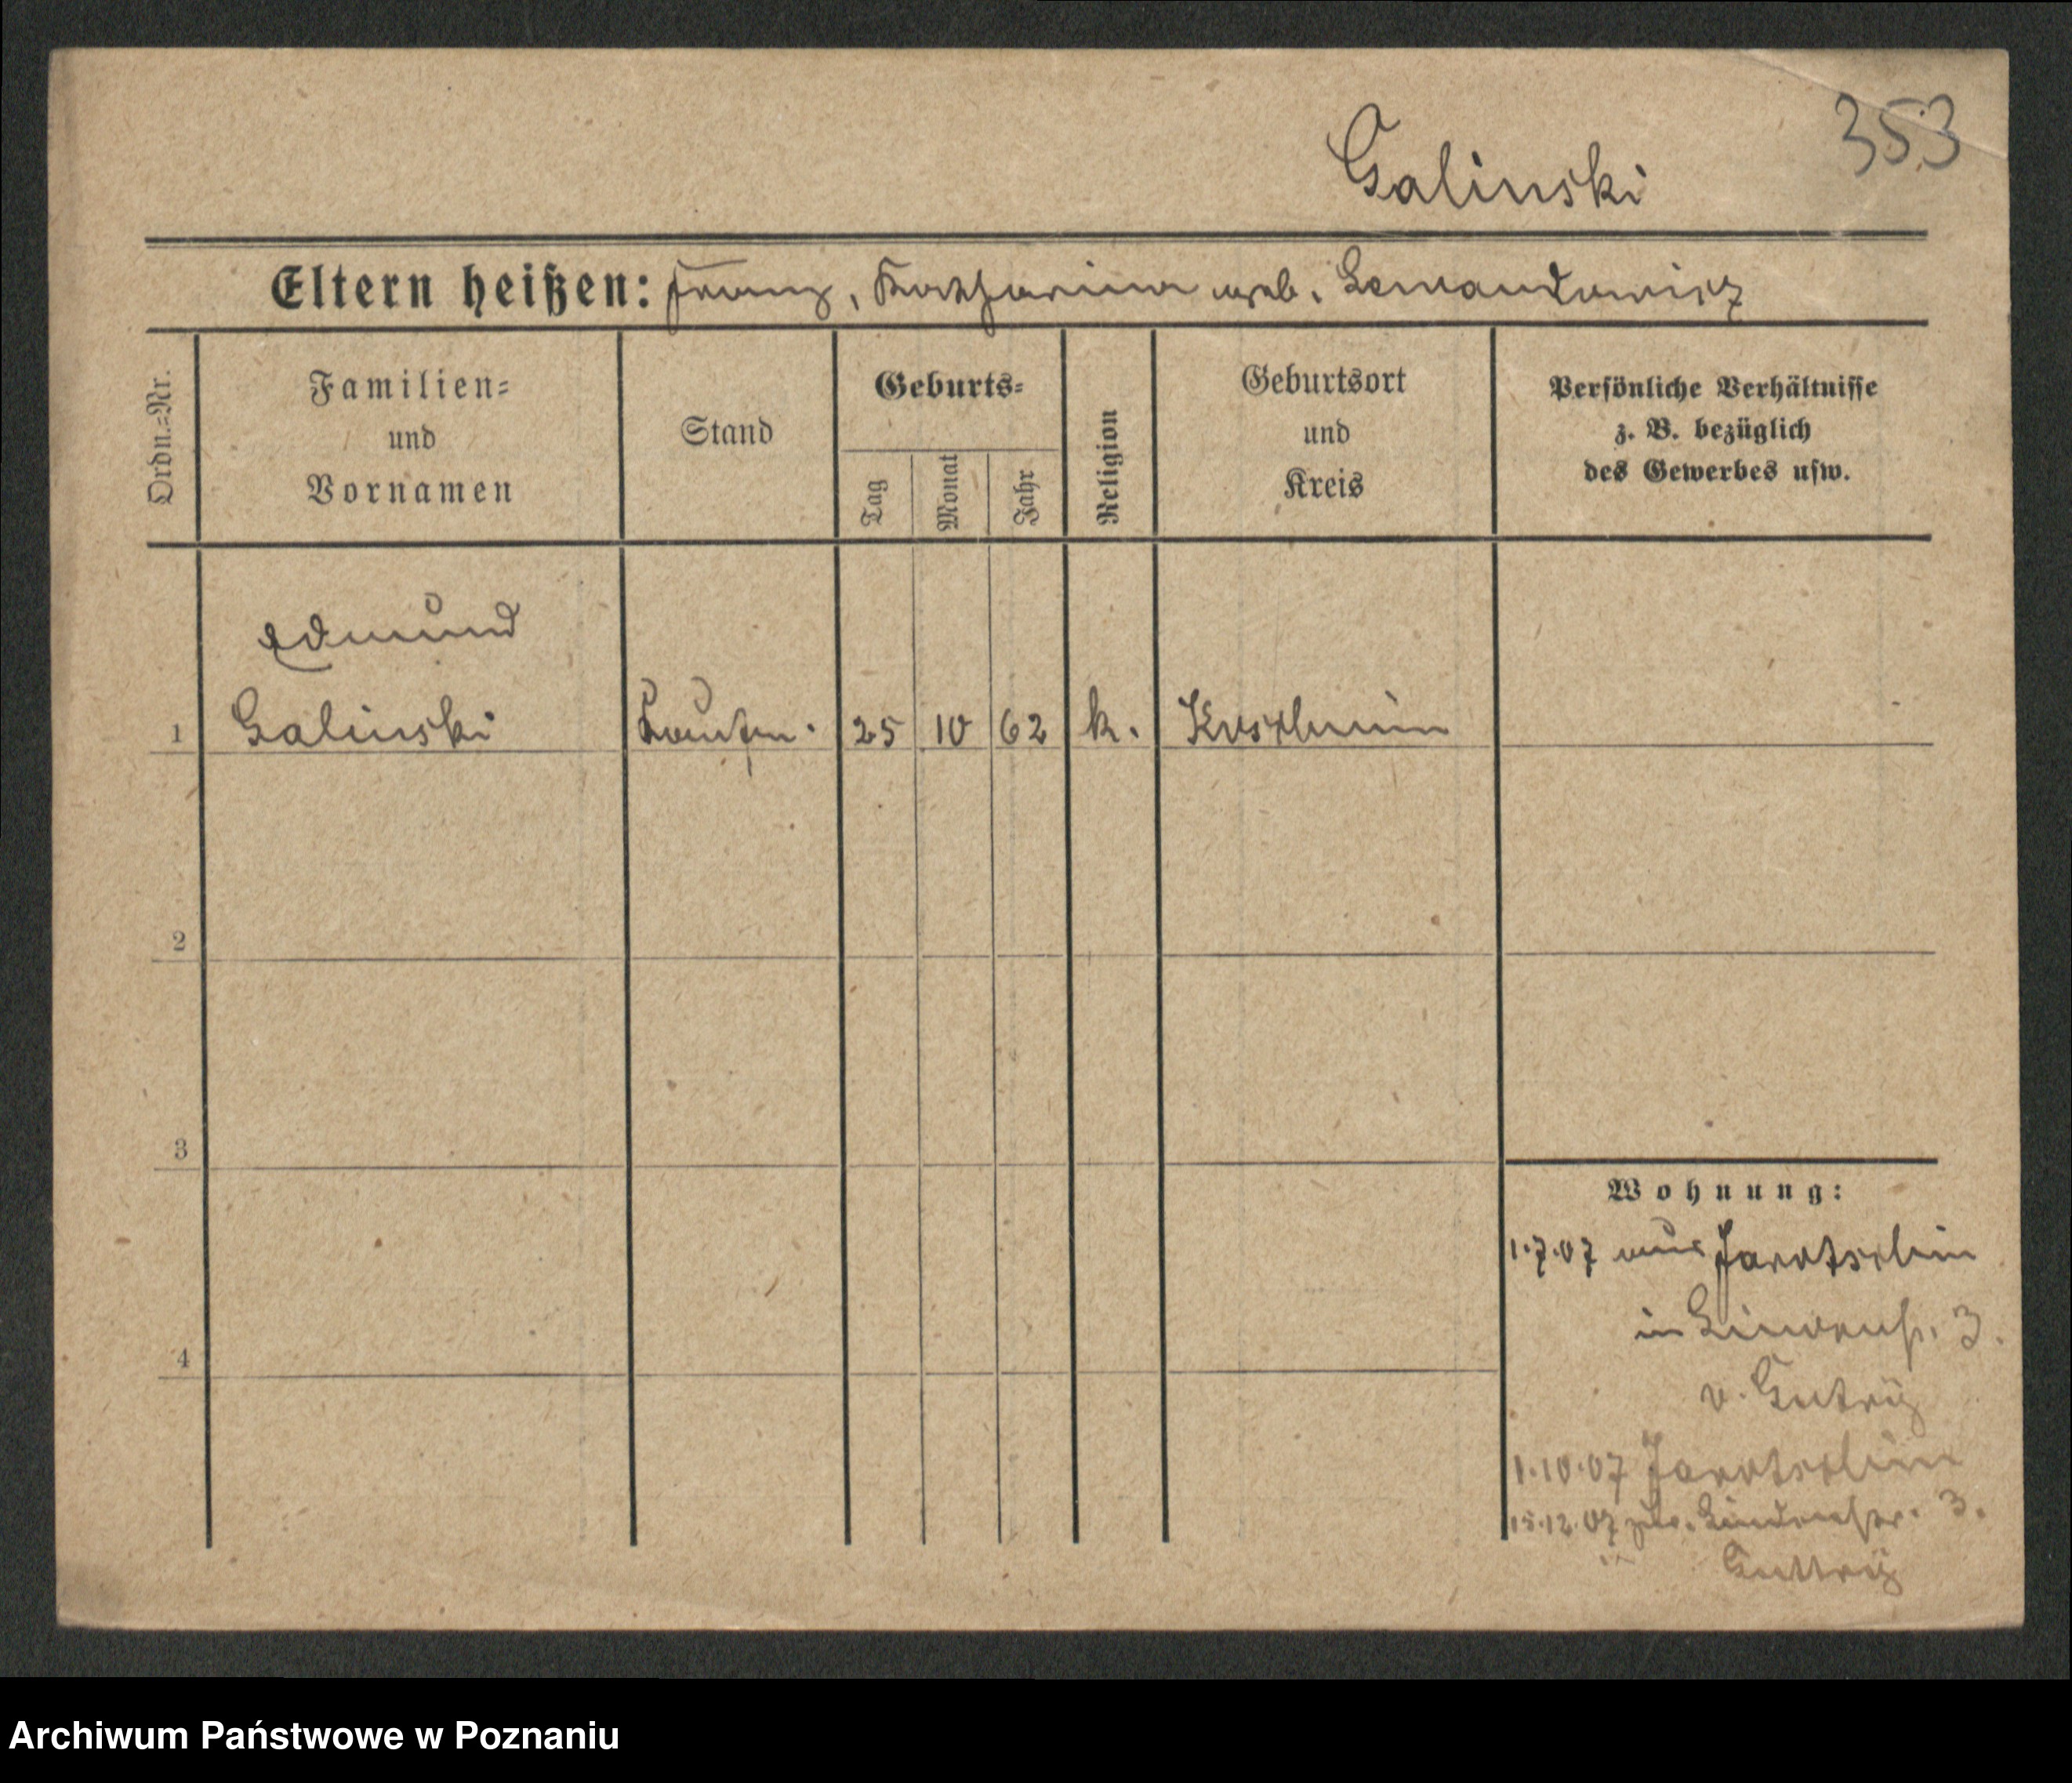 353
Galinski
Eltern heißen: Franz, Katharina geb. Lewandowicz
Ordn.=Nr.
Familien=
und
Vornamen
Stand
Geburts=
Tag
Monat
Jahr
Religion
Geburtsort
und
Kreis
Persönliche Verhältnisse
z. B. bezüglich
des Gewerbes usw.
Edmund
1 Galinski Kaufm. 25 10 62 k. Koschmin
2
3
4
Wohnung:
1.7.07 aus Jarotschin
in Lindenstr. 3.
v. Gutry
1.10.07 Jarotschin
15.12.07 zur. Lindenstr. 3.
Guttry
Archiwum Państwowe w Poznaniu